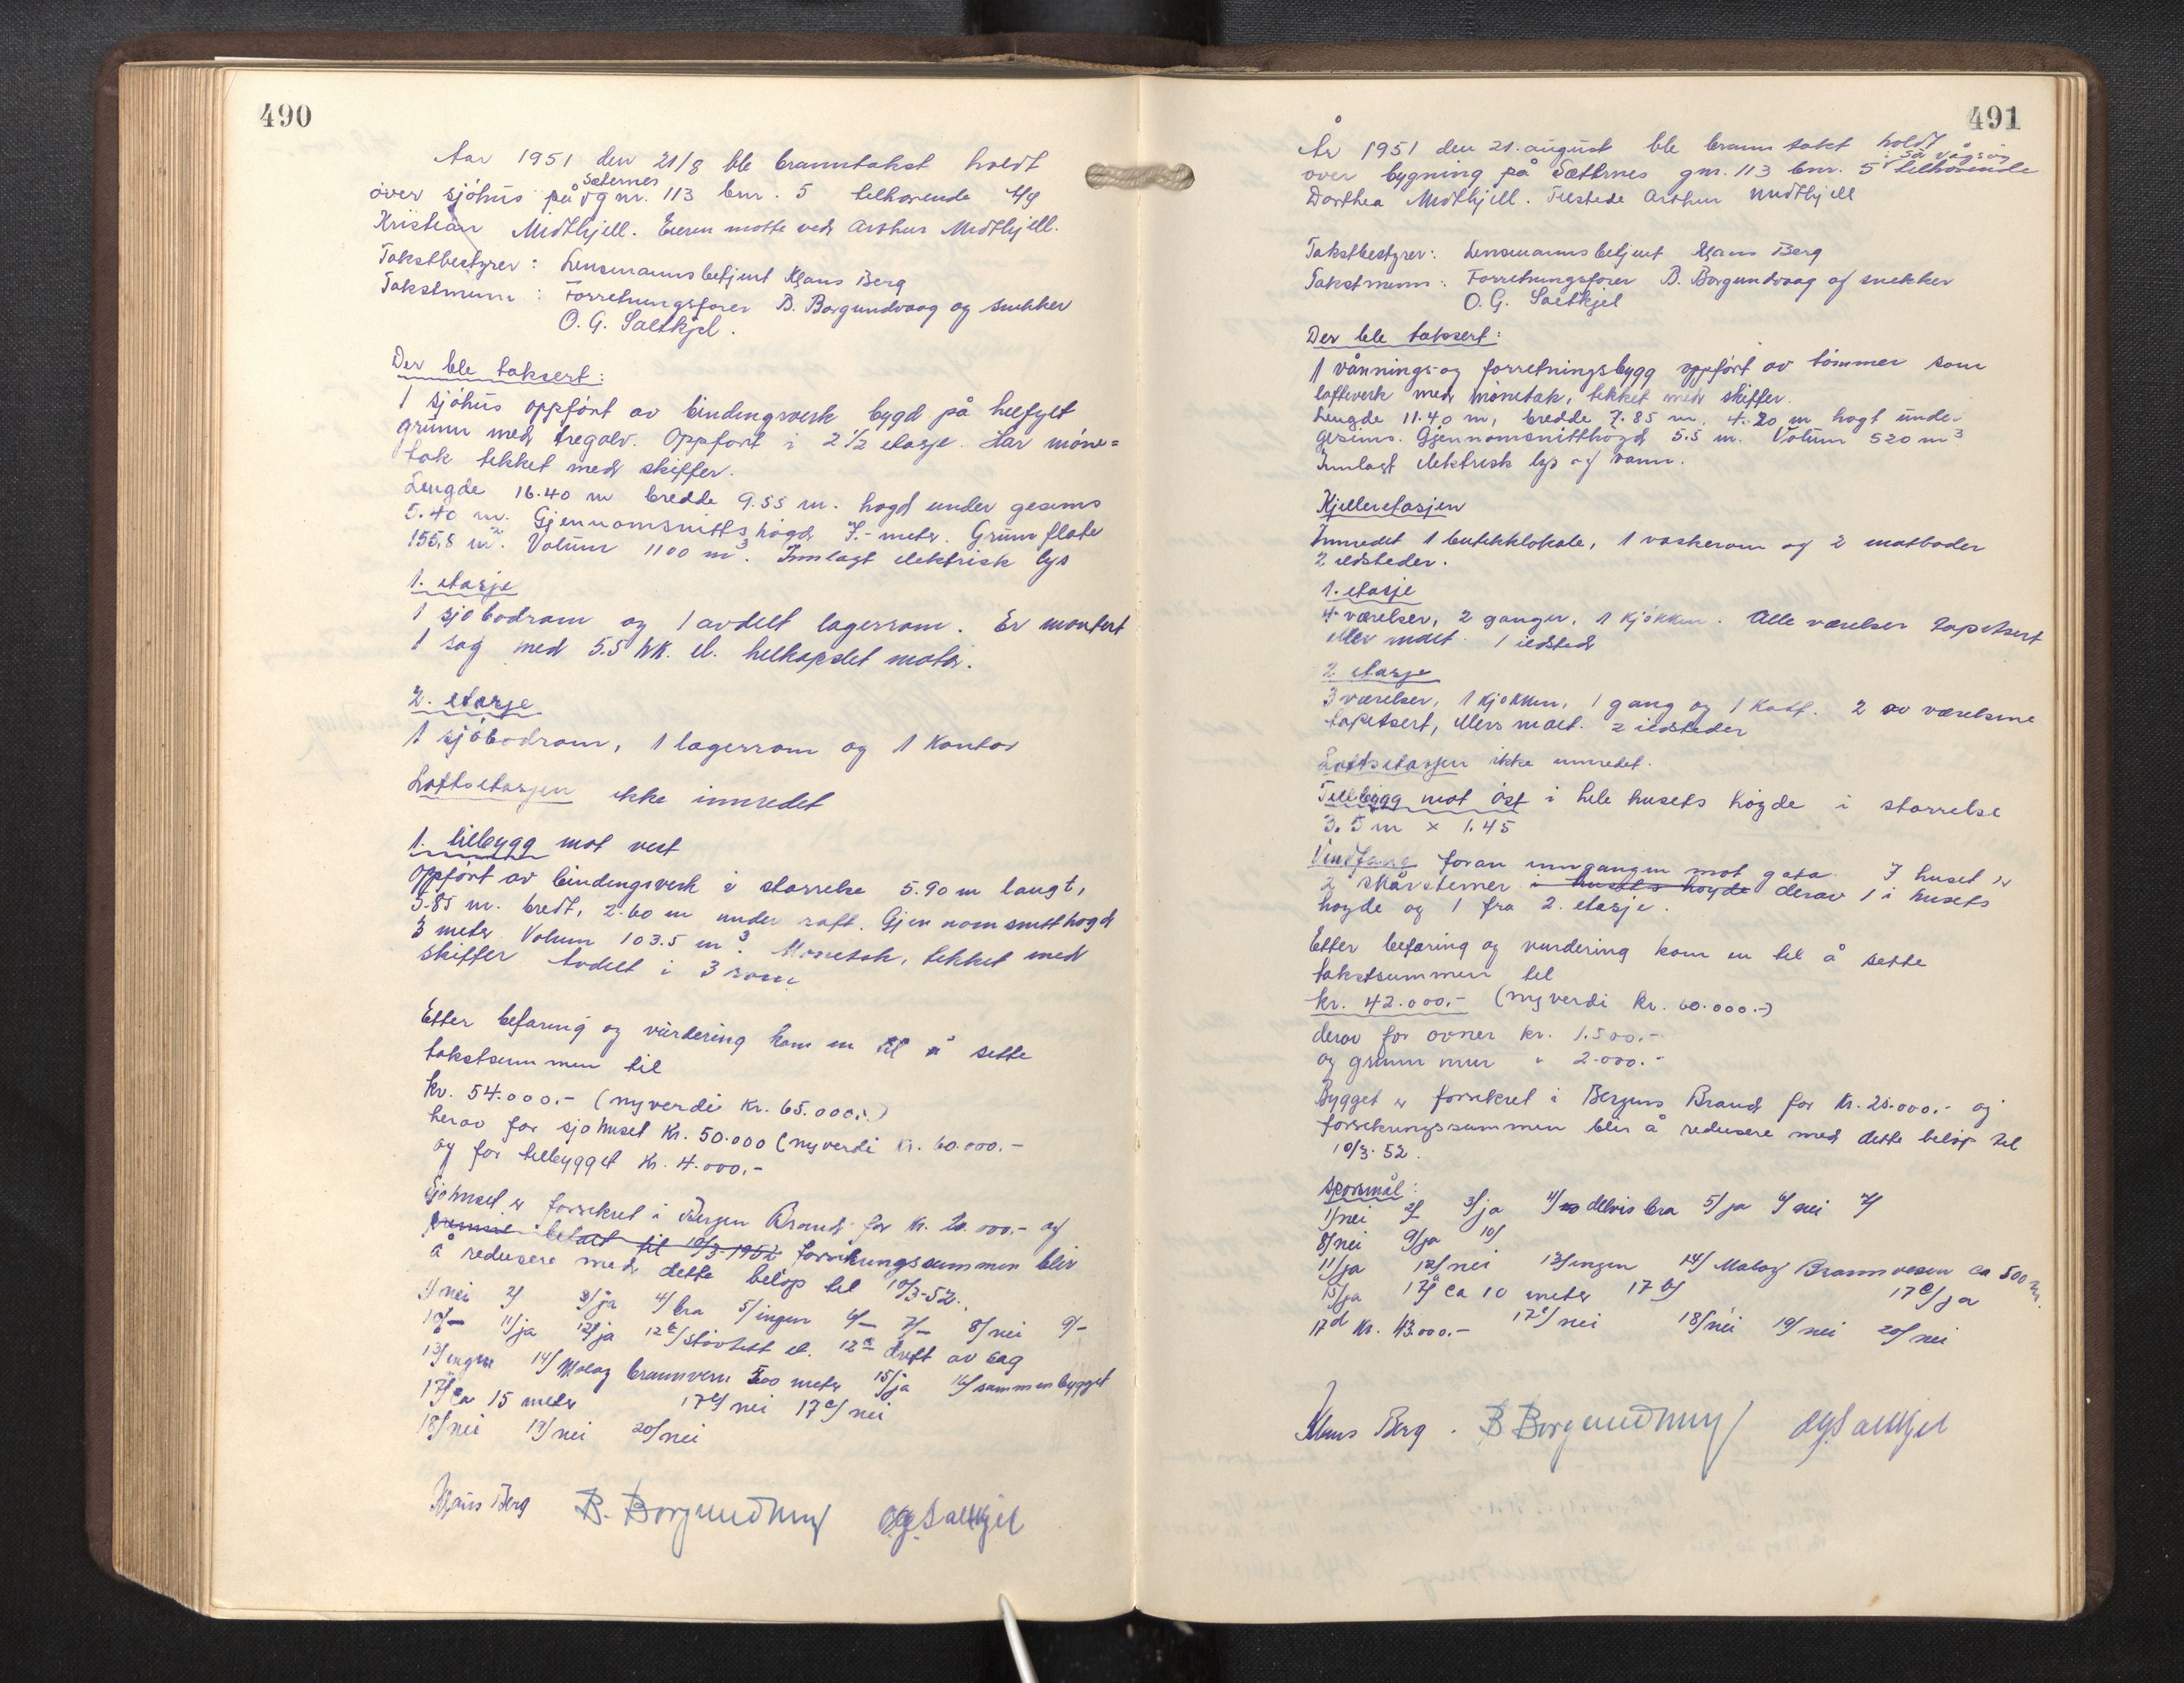 490
Aar 1951 den 21/8 ble branntakst holdt
over sjöhus på Sæternes gnr. 113 bnr. 5 tilhørende
Kristian Midthjell. Eieren møtte ved Arthur Midthjell.
Takstbestyrer: Lensmannsbetjent Klaus Berg
Takstmenn: Forretningsfører B. Borgundvaag og snekker
O. G. Saltkjel.
Der ble taksert:
1 sjöhus oppført av bindingsverk bygd på helfylt
grunn med tregolv. Oppført i 2 1/2 etasje. Har møne=
tak tekket med skiffer.
Lengde 16.40 m bredde 9.55 m. høgd under gesims
5.40 m. Gjennomsnittshøgd 7.- meter. Grunnflate
155,8 m2. Volum 1100 m3. Innlagt elektrisk lys
1. etasje
1 sjøbodrom og 1 avdelt lagerrom. Er montert
1 sag med 5.5 hk. el. helkapslet motor.
2. etasje
1 sjøbodrom, 1 lagerrom og 1 kontor
Loftsetasjen ikke innredet
1. tilbygg mot vest
Oppført av bindingsverk i størrelse 5.90 m langt,
5.85 m. bredt, 2.60 m under raft. Gjennomsnitthøgd
3 meter. Volum 103.5 m3. Mønetak, tekket med
skiffer. Avdelt i 3 rom.
Etter befaring og vurdering kom en til å sette
takstsummen til
kr. 54.000.- (nyverdi kr. 65.000.-)
herav for sjøhuset kr. 50.000 (nyverdi kr. 60.000.-
og for tilbygget kr. 4.000.-
Sjøhuset er forsikret i Bergen Brand for kr. 20.000.- og
premie betalt til 10/3-1952 forsikringssummen blir
å redusere med dette beløp til 10/3-52.
1/ nei 2/ 3/ ja 4/ bra 5/ ingen 6/- 7/- 8/ nei 9/-
10/- 11/ ja 12/ ja 12b/ støvtett el. 12c drift av sag
13/ ingen 14/ Måløy brannvern 500 meter 15/ ja 16/ sammenbygget
17/ Ca 15 meter 17b/ nei 17c/ nei
18/ nei 19/ nei 20/ nei
Klaus Berg B. Borgundvaag OGSaltkjel
491
År 1951 den 21. august ble branntakst holdt
over bygning på Sæternes gnr. 113 bnr. 5 i Sør Vågsøy tilhørende
Dorthea Midthjell. Tilstede Arthur Midthjell
Takstbestyrer: Lensmannsbetjent Klaus Berg
Takstmenn: Forretningsfører B. Borgundvaag og snekker
O. G. Saltkjel
Der ble taksert:
1 vånings- og forretningsbygg oppført av tømmer som
lafteverk med mønetak, tekket med skiffer.
Lengde 11.40 m, bredde 7.85 m. 4.20 m høgt under
gesims. Gjennomsnitthøgd 5.5 m. Volum 520 m3
Innlagt elektrisk lys og vann.
Kjelleretasjen
Innredet 1 butikklokale, 1 vaskerom og 2 matboder
2 ildsteder.
1. etasje
4 værelser, 2 ganger, 1 kjøkken. Alle værelser tapetsert
eller malt. 1 ildsted
2 etasje
3 værelser, 1 kjøkken, 1 gang og 1 kott. 2 av værelsene
tapetsert, ellers malt. 2 ildsteder
Loftsetasjen ikke innredet.
Tilbygg mot øst i hele husets høyde i størrelse
3.5 m x 1.45
Vindfang foran inngangen mot gata. I huset er
2 skårsteiner i husets høyde derav 1 i husets
høyde og 1 fra 2. etasje.
Etter befaring og vurdering kom en til å sette
takstsummen til
kr. 42.000.- (nyverdi kr. 60.000.-)
derav for ovner kr. 1.500.-
og grunnmur " 2.000.-
Bygget er forsikret i Bergens Brand for kr. 25.000.- og
forsikringssummen blir å redusere med dette beløp til
10/3-52.
Spørsmål:
1/ nei 2/ 3/ ja 4/ delvis bra 5/ ja 6/ nei 7/
8/ nei 9/ ja 10/
11/ ja 12/ nei 13/ ingen 14/ Måløy Brannvesen ca 500 m.
15/ ja 17a/ ca 10 meter 17b/ 17c/ ja
17d kr. 43.000.- 17e/ nei 18/ nei 19/ nei 20/ nei
Klaus Berg. B Borgundvaag OGSaltkjel